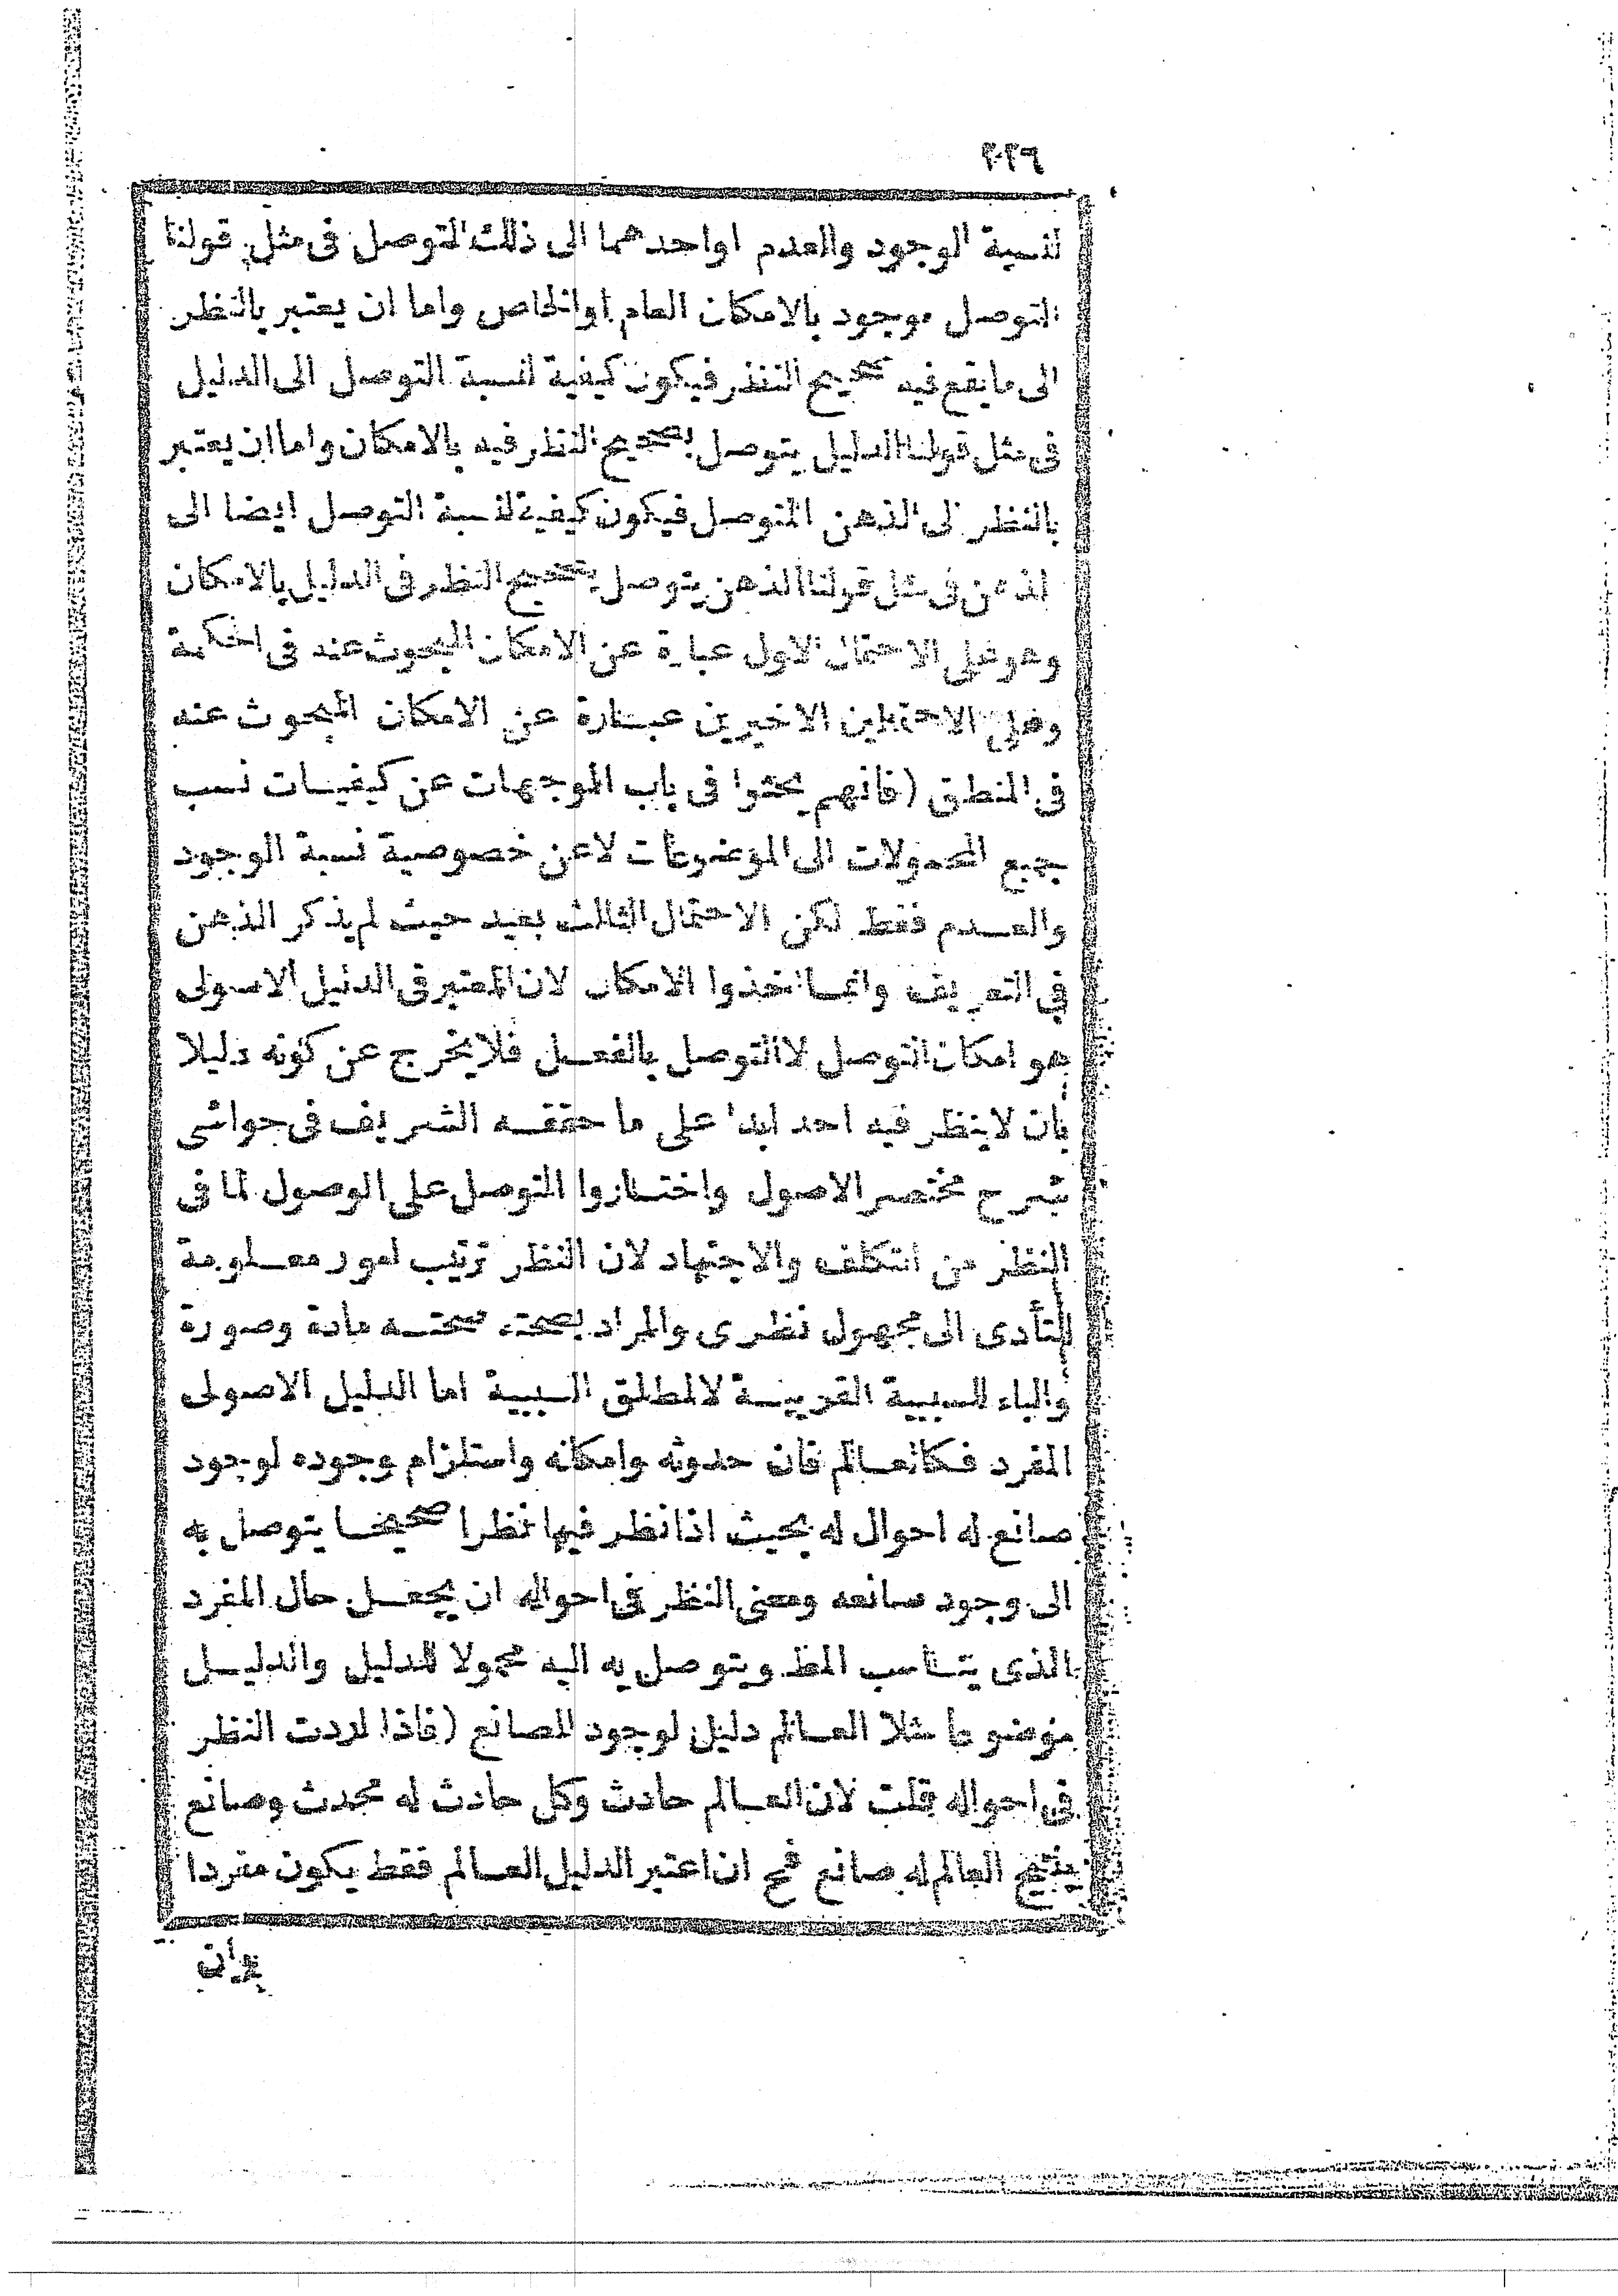 ٢٠٢٩
لنسبة الوجود والعدم او احدهما الى ذلك التوصل فى مثل قولنا
التوصل موجود بالامكان العام او الخاص واما ان يعتبر بالنظر
الى ما يقع فيه صحيح النظر فيكون كيفية لنسبة التوصل الى الدليل
فى مثل قولنا الدليل يتوصل بصحيح النظر فيه بالامكان واما ان يعتبر
بالنظر الى الذهن المتوصل فيكون كيفية لنسبة التوصل ايضا الى
الذهن فى مثل قولنا الذهن يتوصل بصحيح النظر فى الدليل بالامكان
وهو على الاحتمال الاول عبارة عن الامكان المبحوث عنه فى الحكمة
وعلى الاحتمالين الاخيرين عبارة عن الامكان المبحوث عنه
فى المنطق (فانهم بحثوا فى باب الموجهات عن كيفيات نسب
جميع المحمولات الى الموضوعات لا عن خصوصية نسبة الوجود
والعدم فقط لكن الاحتمال الثالث بعيد حيث لم يذكر الذهن
فى التعريف وانما اخذوا الامكان لان المعتبر فى الدليل الاصولى
هو امكان التوصل لا التوصل بالفعل فلا يخرج عن كونه دليلا
بان لا ينظر فيه احد ابدا على ما حققه الشريف فى حواشى
شرح مختصر الاصول واختاروا التوصل على الوصول لما فى
النظر من التكلف والاجتهاد لان النظر ترتيب امور معلومة
للتأدى الى مجهول نظرى والمراد بصحته صحته مادة وصورة
والباء للسببية القريبة لا لمطلق السببية اما الدليل الاصولى
المفرد فكالعالم فان حدوثه وامكانه واستلزام وجوده لوجود
صانع له احوال له بحيث اذا نظر فيها نظرا صحيحا يتوصل به
الى وجود صانعه ومعنى النظر فى احواله ان يجعل حال المفرد
الذى يتناسب المط ويتوصل به اليه محمولا للدليل والدليل
موضوعا مثلا العالم دليل لوجود الصانع (فاذا اردت النظر
فى احواله قلت لان العالم حادث وكل حادث له محدث وصانع
ينتج العالم له صانع فح ان اعتبر الدليل العالم فقط يكون مفردا